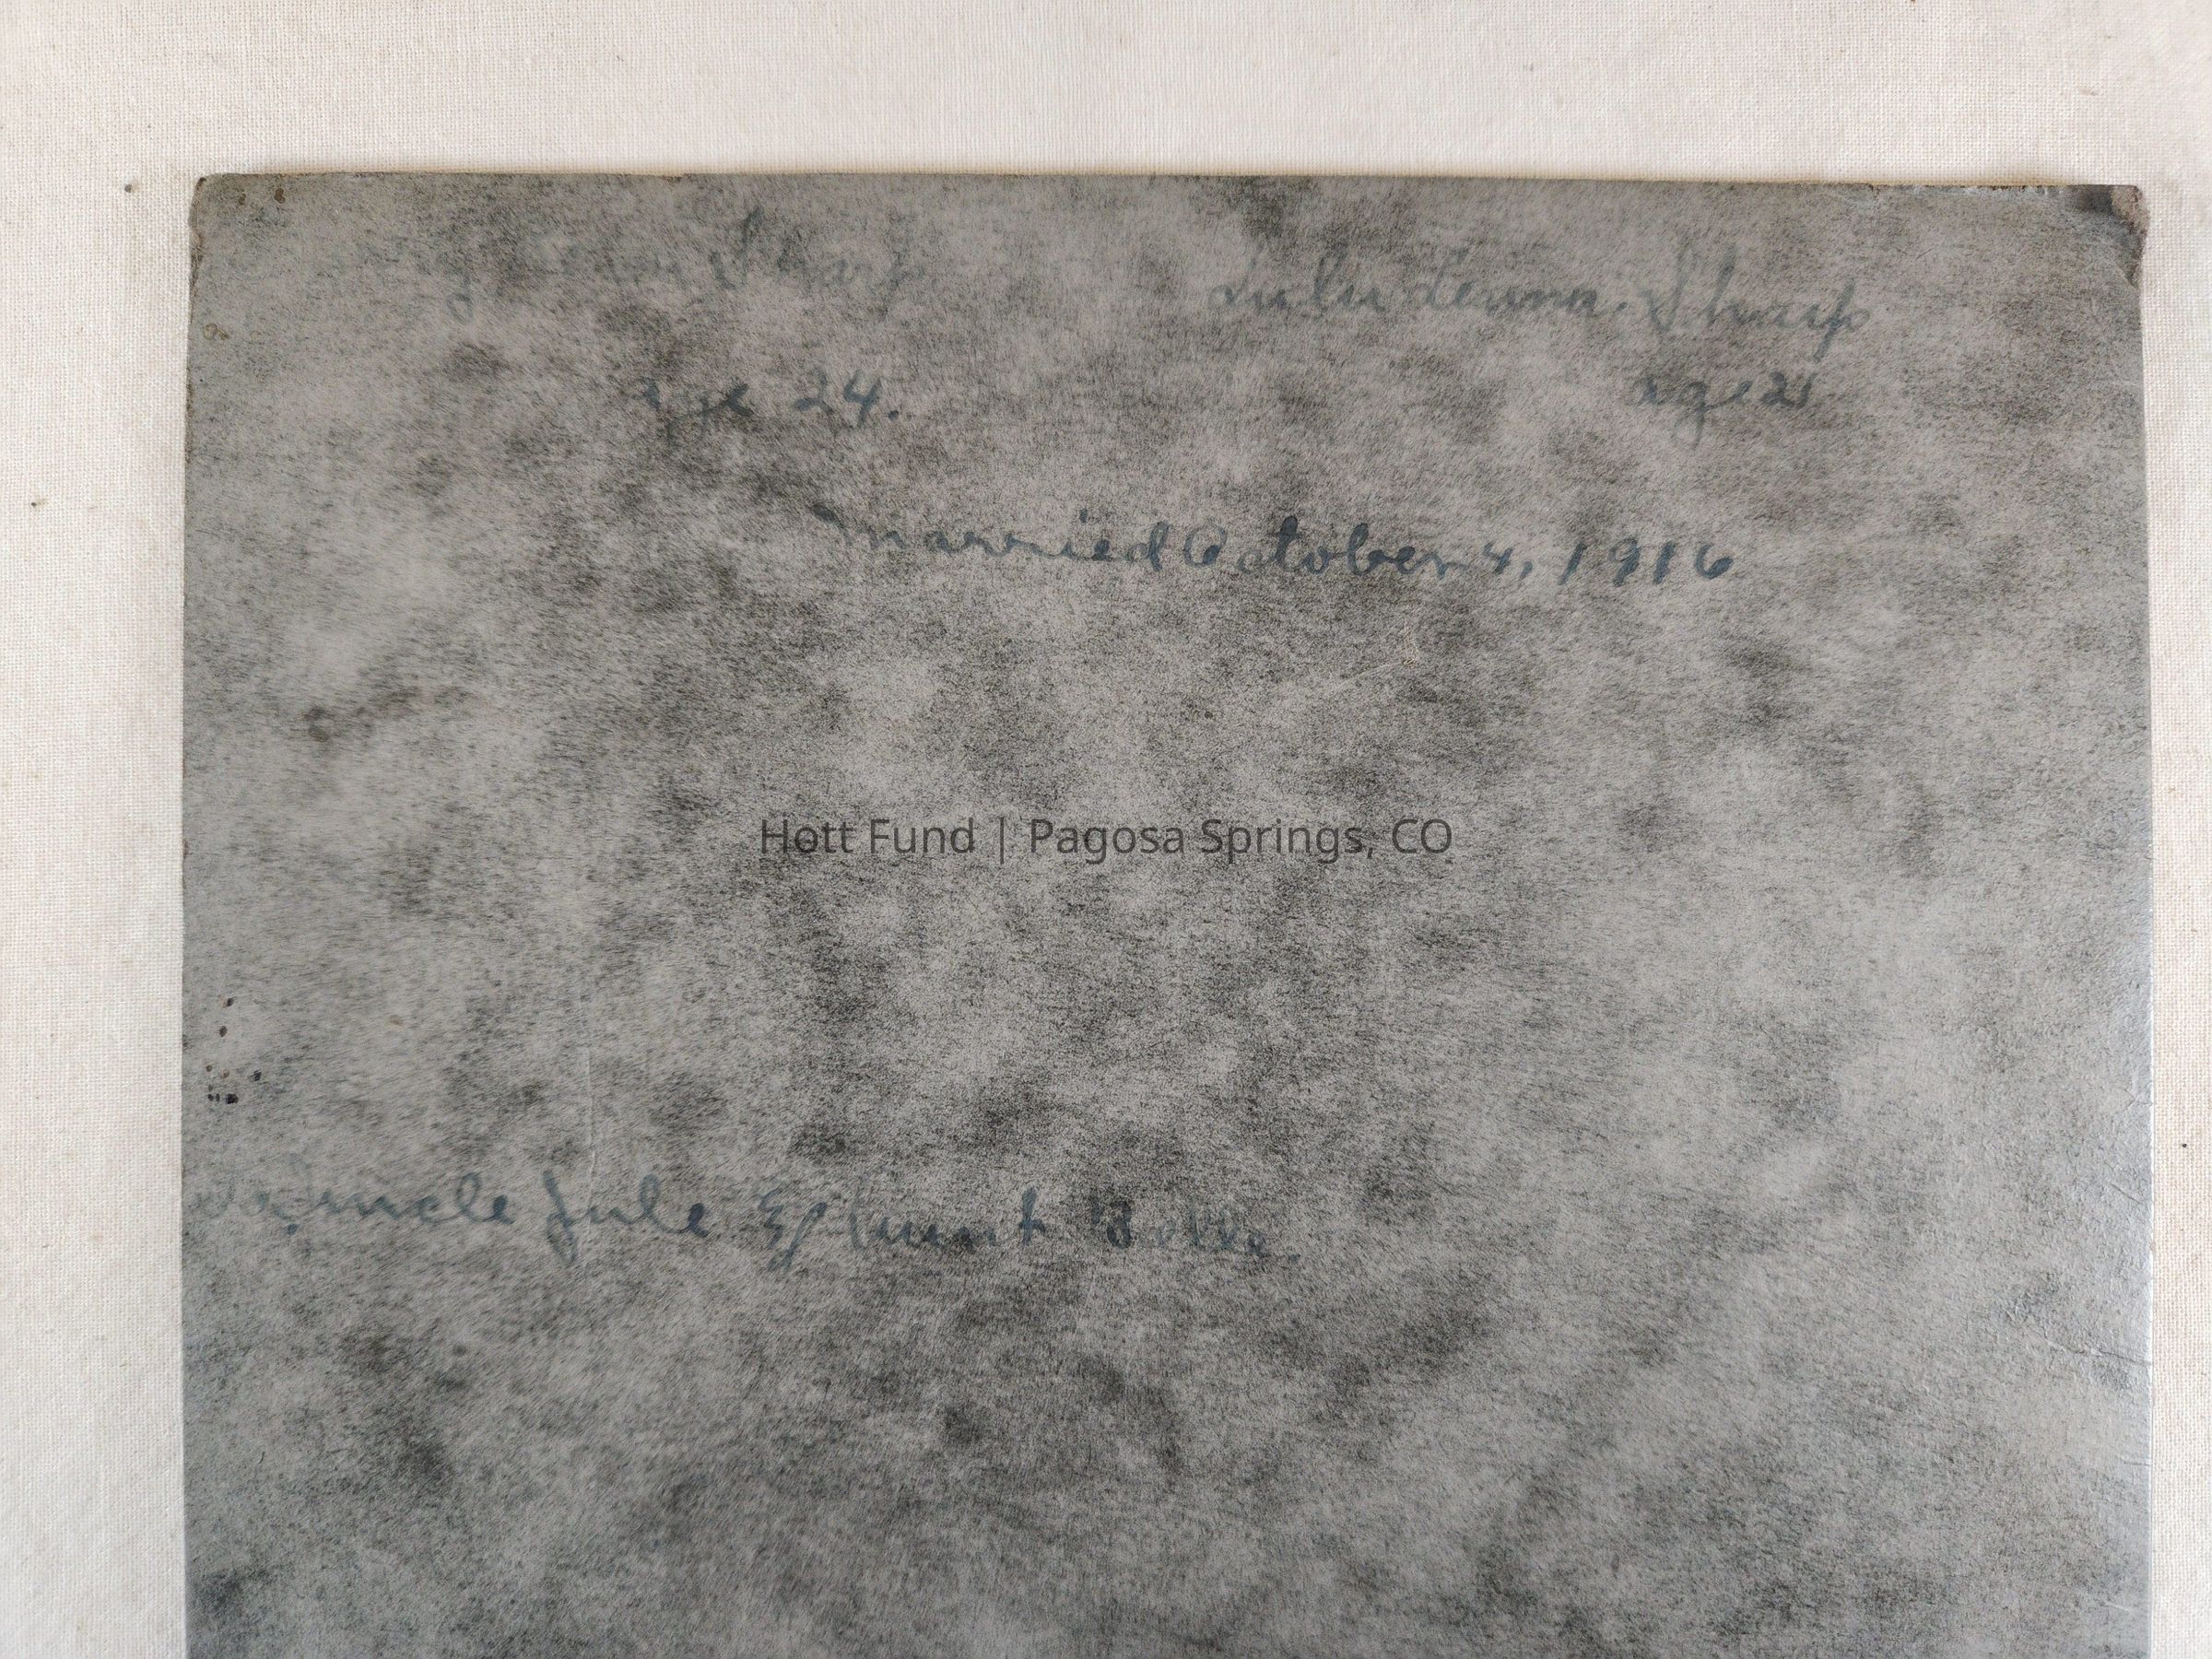 Sharp Lulu Sharp
age 24. age 21
Married October 4, 1916
Hott Fund | Pagosa Springs, CO
uncle Jule & Aunt